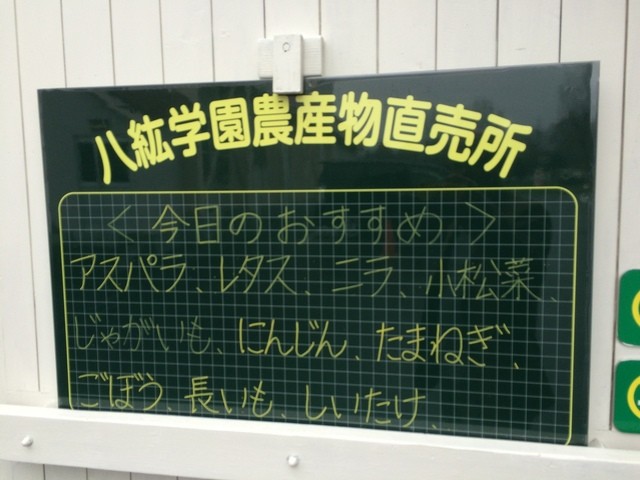 八紘学園農産物直売所
＜今日のおすすめ＞
アスパラ、レタス、ニラ、小松菜、
じゃがいも、にんじん、たまねぎ、
ごぼう、長いも、しいたけ、